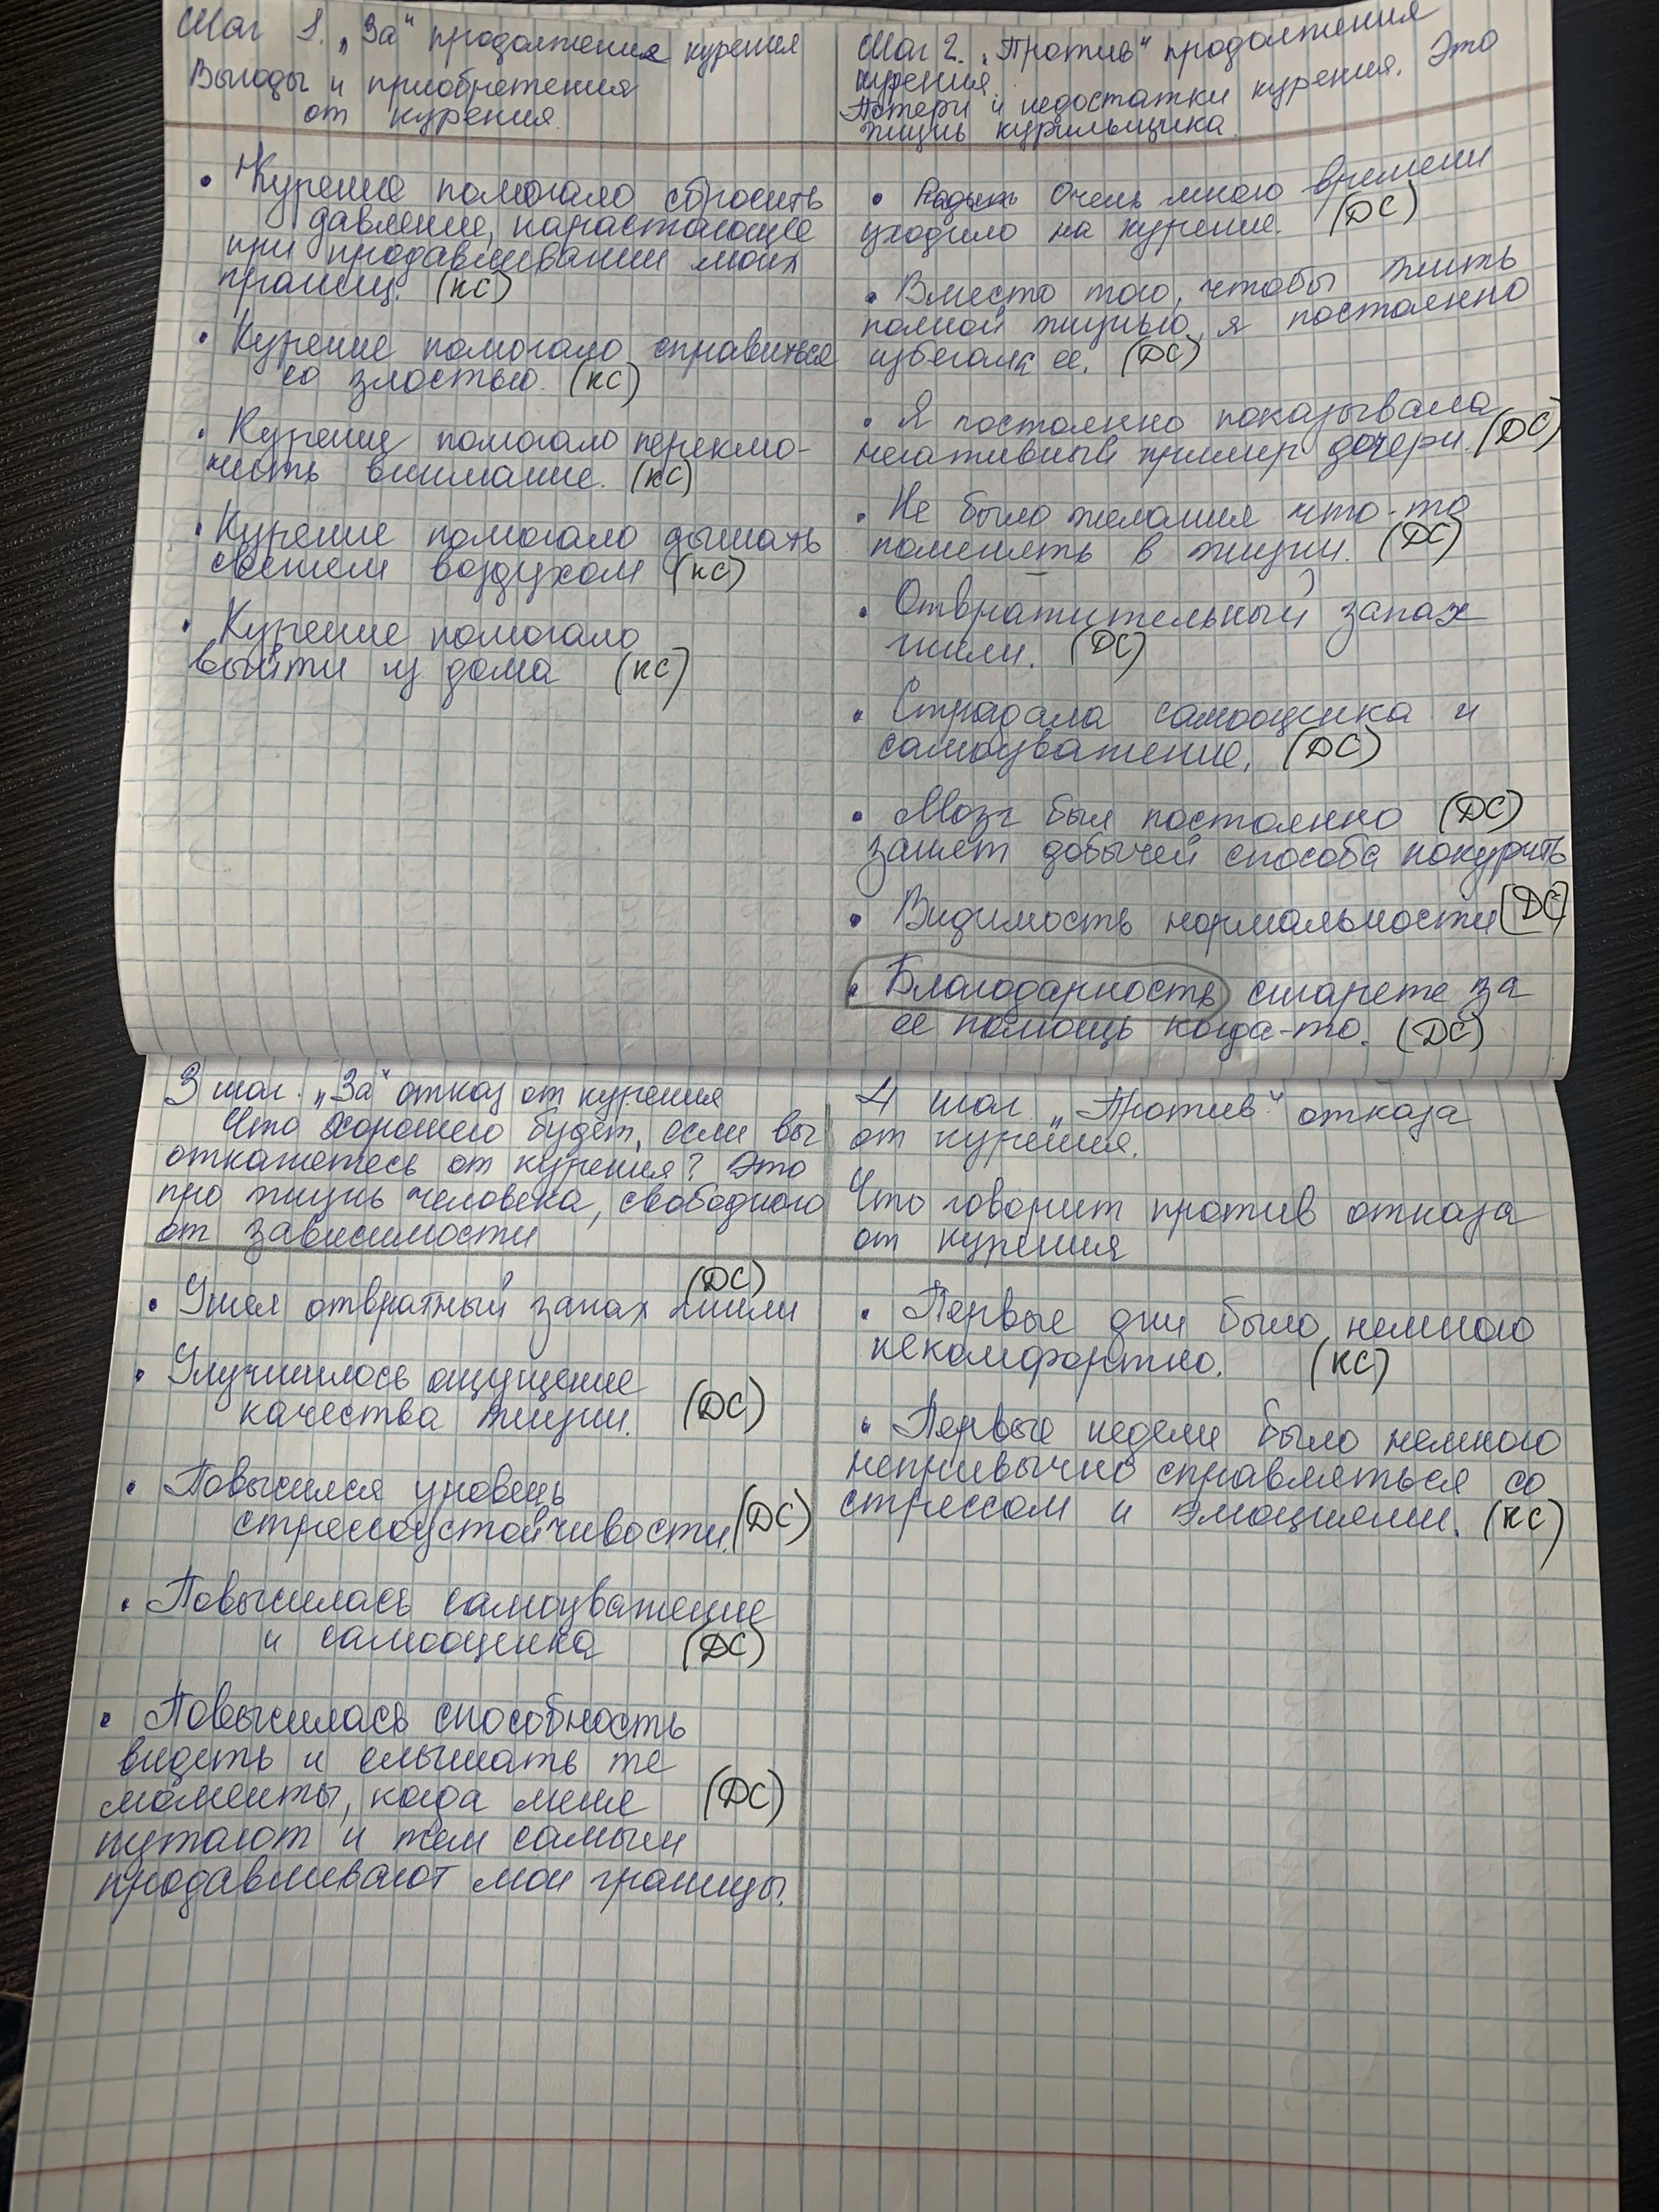 Шаг 1. „За“ продолжения курения
Выгоды и приобретения
от курения.
• Курение помогало сбросить
давление, нарастающее
при продавливании моих
границ. (КС)
• Курение помогало справиться
со злостью. (КС)
• Курение помогало переклю-
чить внимание. (КС)
• Курение помогало дышать
свежем воздухом (КС)
• Курение помогало
выйти из дома (КС)
Шаг 2. „Против“ продолжения
курения.
Потери и недостатки курения. Это
жизнь курильщика.
• Очень много времени
уходило на курение. (ДС)
• Вместо того, чтобы жить
полной жизнью, я постоянно
избегала ее. (ДС)
• Я постоянно показывала
негативный пример дочери. (ДС)
• Не было желания что-то
поменять в жизни. (ДС)
• Отвратительный запах
гнили. (ДС)
• Страдала самооценка и
самоуважение. (ДС)
• Мозг был постоянно (ДС)
занят добычей способа покурить
• Видимость нормальности (ДС)
• Благодарность сигарете за
ее помощь когда-то. (ДС)
3 шаг. „За“ отказ от курения
Что хорошего будет, если вы
откажетесь от курения? Это
про жизнь человека, свободного
от зависимости
(ДС)
• Ушел отвратный запах гнили
• Улучшилось ощущение
качества жизни. (ДС)
• Повысился уровень
стрессоустойчивости. (ДС)
• Повысилась самоуважение
и самооценка (ДС)
• Повысилась способность
видеть и слышать те
моменты, когда меня (ДС)
путают и тем самым
продавливают мои границы.
4 шаг „Против“ отказа
от курения.
Что говорит против отказа
от курения
• Первые дни было немного
некомфортно. (КС)
• Первые недели было немного
непривычно справляться со
стрессом и эмоциями. (КС)